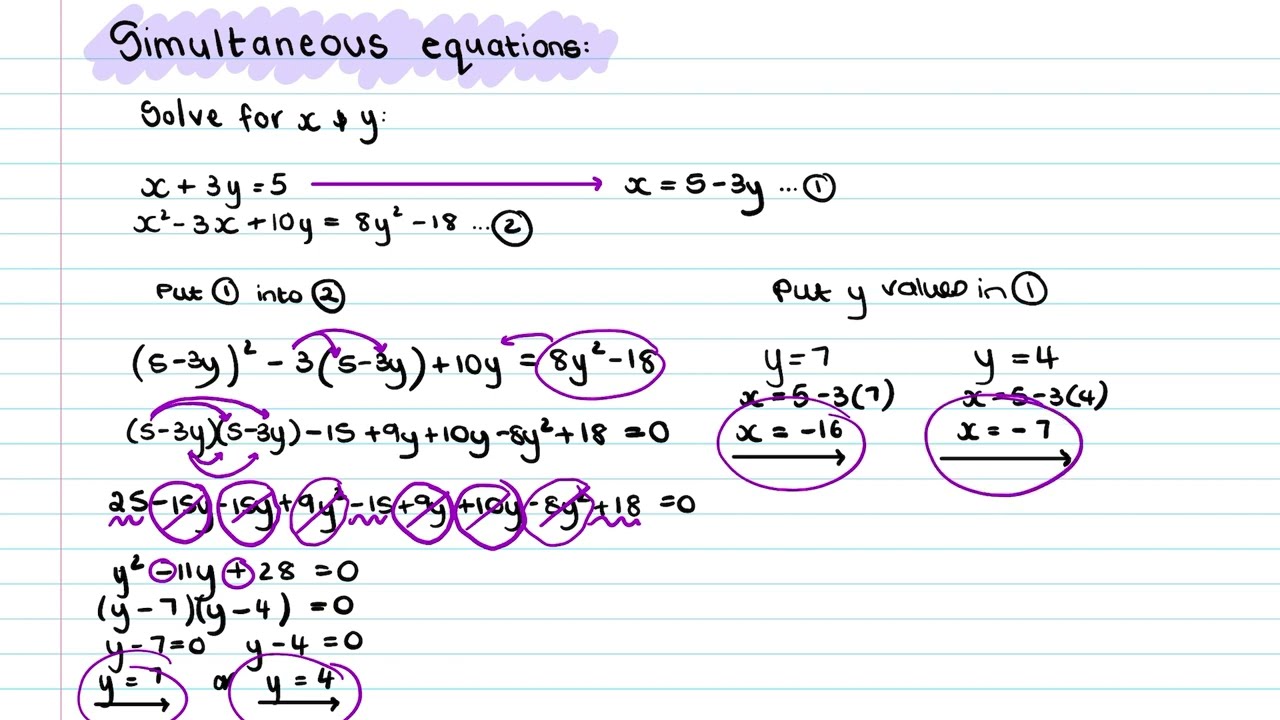 Simultaneous equations:
Solve for x & y:
x + 3y = 5 → x = 5 - 3y ... ①
x² - 3x + 10y = 8y² - 18 ... ②
Put ① into ②
(5-3y)² - 3(5-3y) + 10y = 8y² - 18
(5-3y)(5-3y) - 15 + 9y + 10y - 8y² + 18 = 0
25 - 15y - 15y + 9y² - 15 + 9y + 10y - 8y² + 18 = 0
y² - 11y + 28 = 0
(y - 7)(y - 4) = 0
y - 7 = 0 y - 4 = 0
y = 7 or y = 4
Put y values in ①
y = 7 y = 4
x = 5 - 3(7) x = 5 - 3(4)
x = -16 x = -7